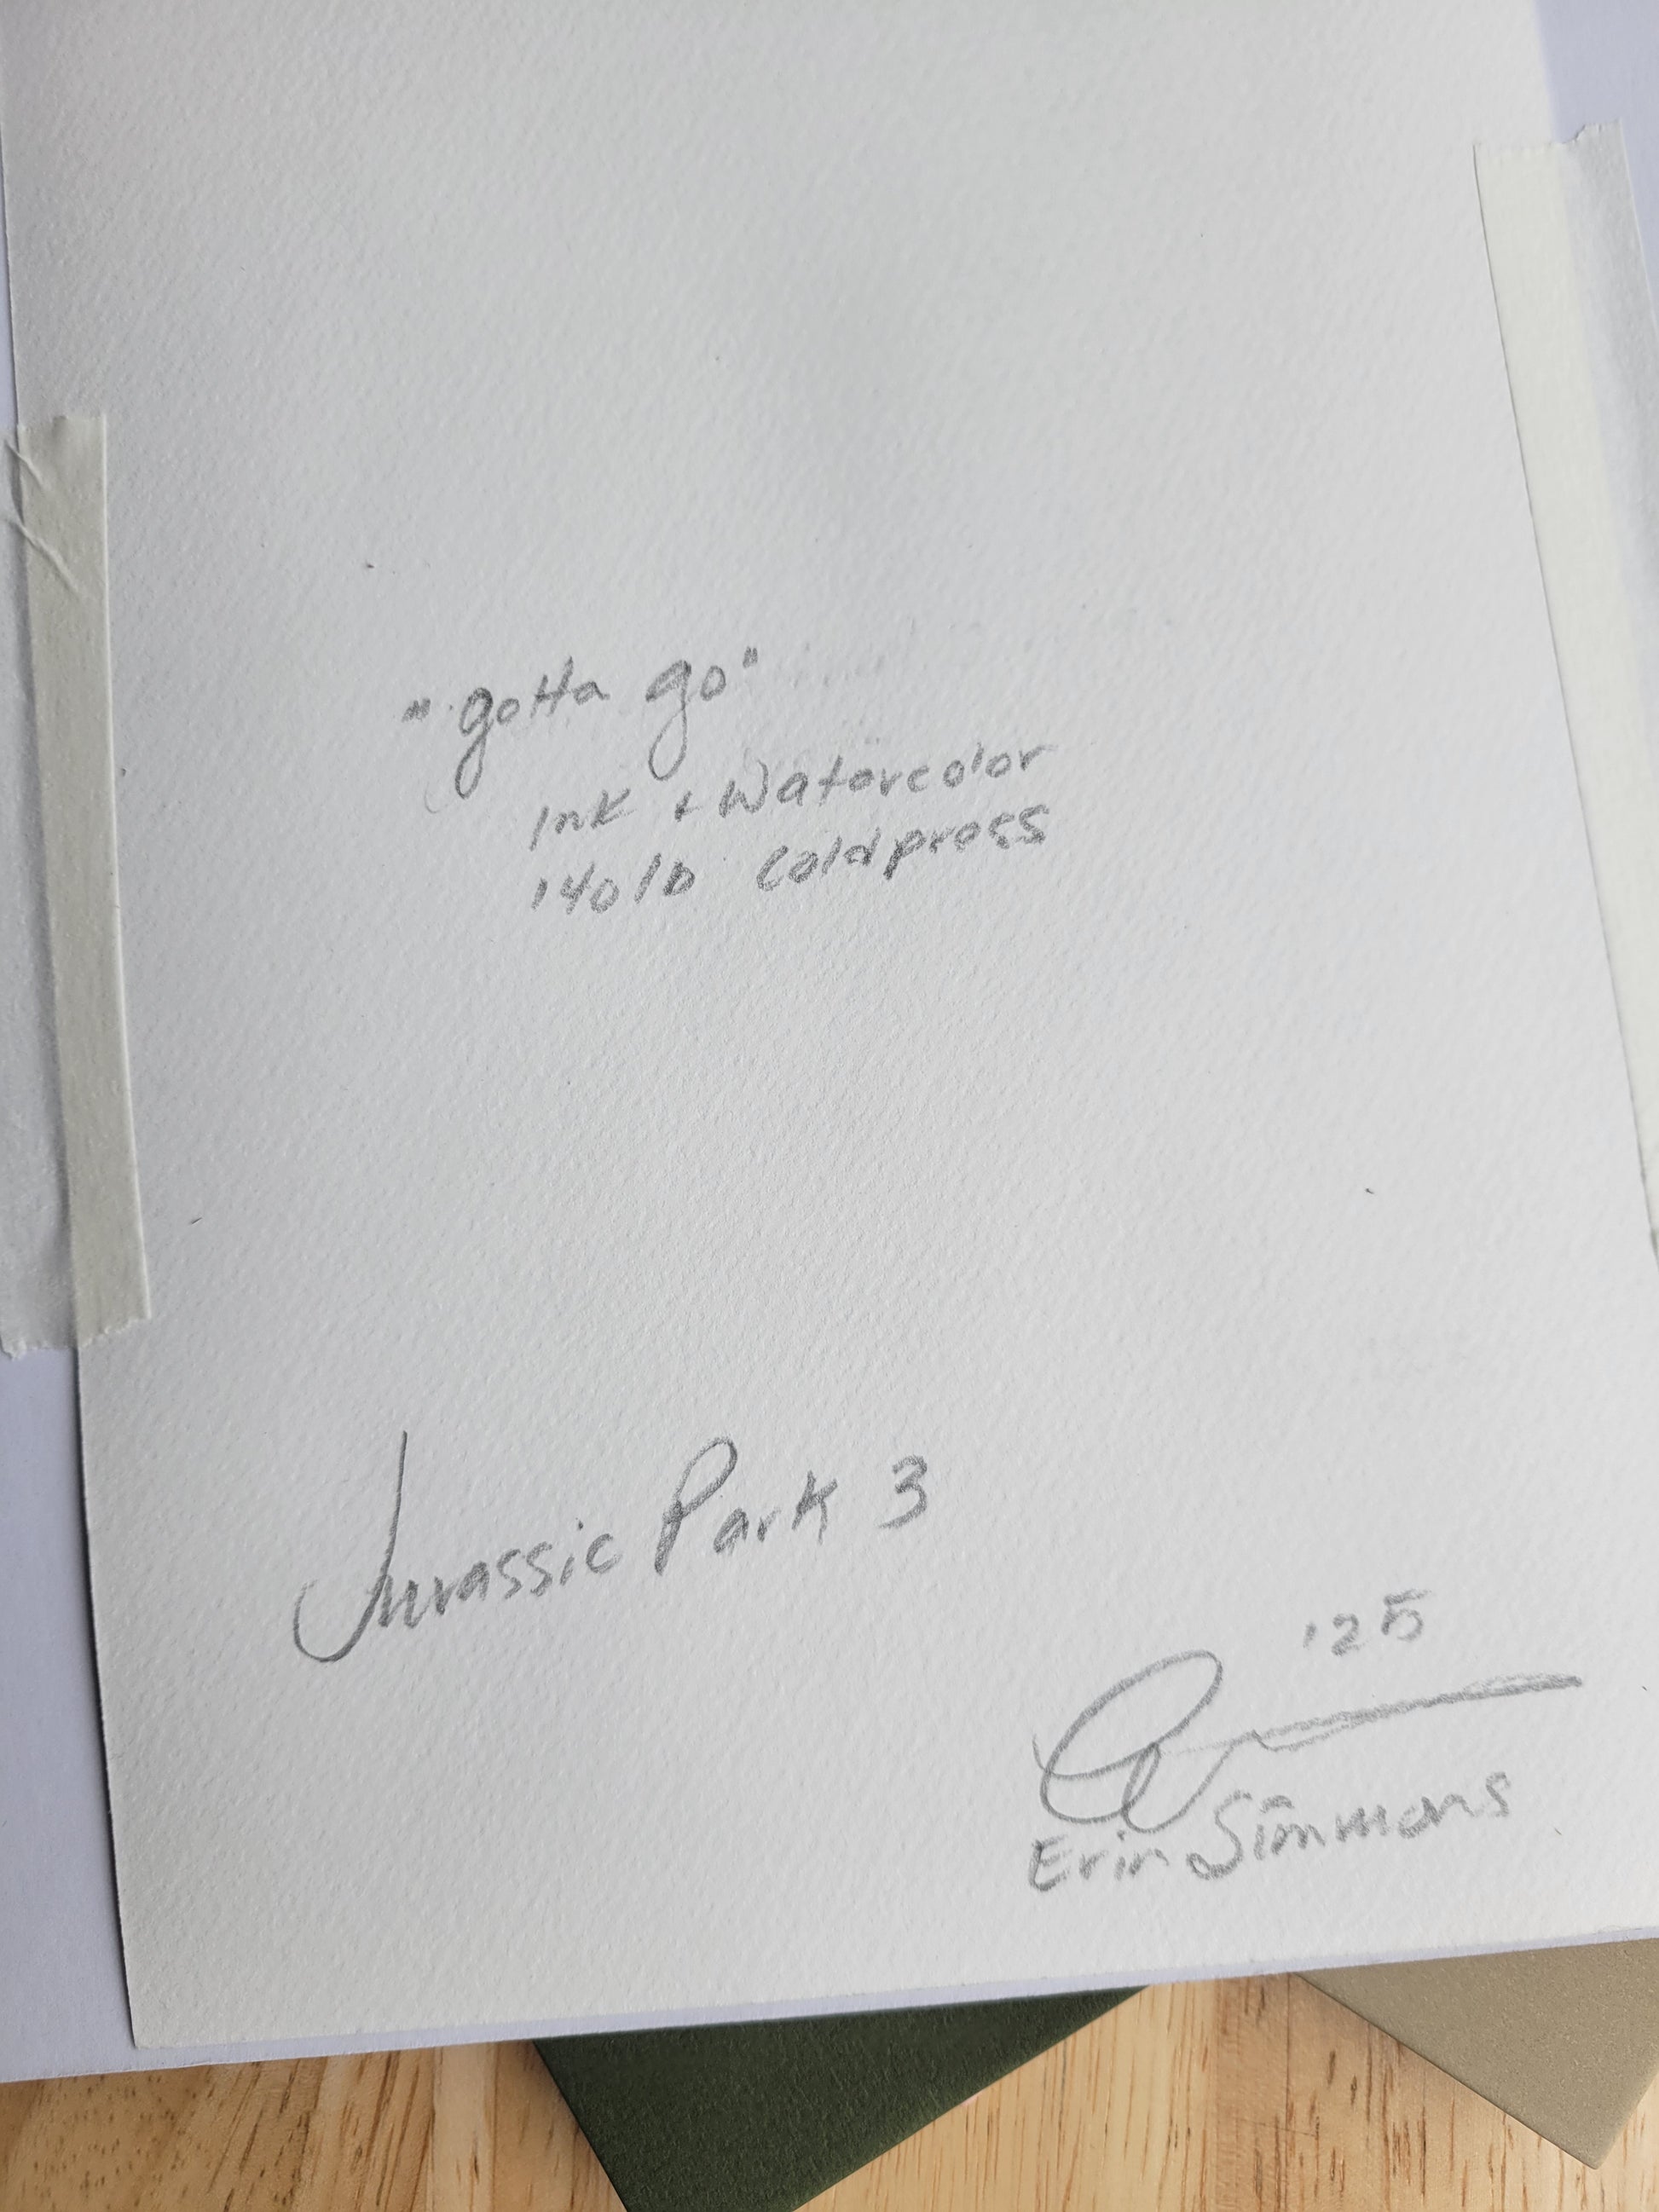 "gotta go"
Ink + Watercolor
140lb Coldpress
Jurassic Park 3
'25
Erin Simmons